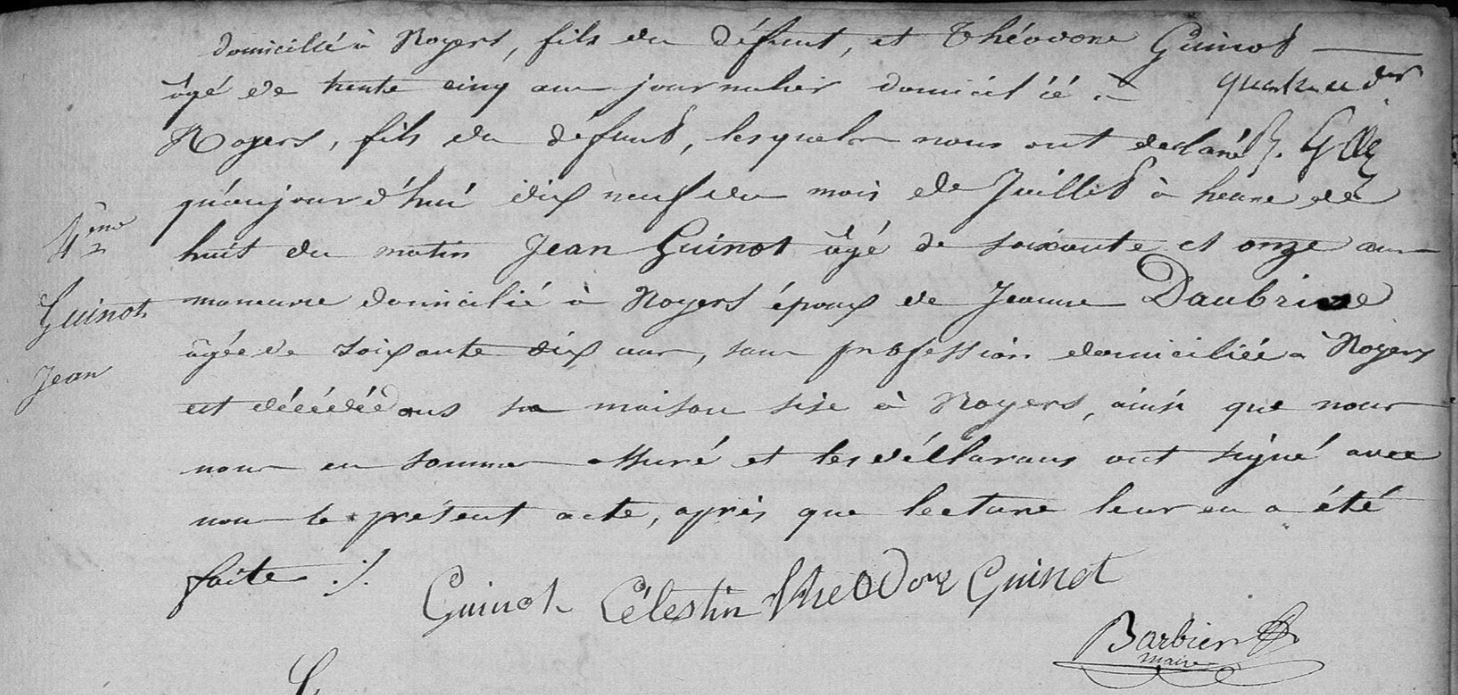 domicilié à Noyers, fils du défunt, et Théodore Guinot
âgé de trente cinq ans journalier domicilié à
Noyers, fils du défunt, lesquels nous ont declaré
qu'aujourd'hui dix neuf du mois de Juillet à heure de
4ème
huit du matin Jean Guinot âgé de soixante et onze ans
Guinot
Jean
manœuvre domicilié à Noyers époux de Jeanne Daubrive
âgée de soixante dix ans, sans profession domiciliée à Noyers
est décédé dans sa maison sise à Noyers, ainsi que nous
nous en sommes assuré et les déclarans ont signé avec
nous le présent acte, après que lecture leur en a été
faite ./.
Guinot Célestin Theodore Guinot
Barbier
maire